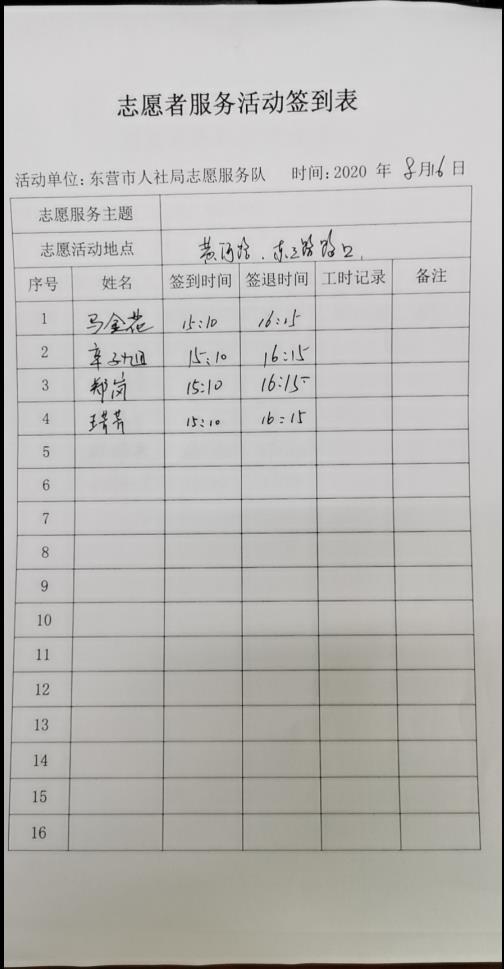 志愿者服务活动签到表
活动单位:东营市人社局志愿服务队 时间:2020 年 8月16日
志愿服务主题
志愿活动地点 黄河路、东三路路口
序号 姓名 签到时间 签退时间 工时记录 备注
1 马金花 15:10 16:15
2 15:10 16:15
3 郑岗 15:10 16:15
4 15:10 16:15
5
6
7
8
9
10
11
12
13
14
15
16